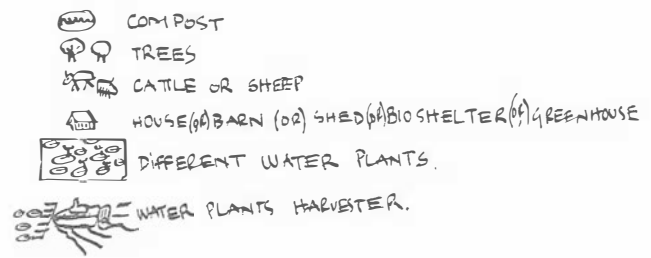 COMPOST
TREES
CATTLE OR SHEEP
HOUSE(OR)BARN (OR) SHED(OR)BIOSHELTER(OR)GREENHOUSE
DIFFERENT WATER PLANTS.
WATER PLANTS HARVESTER.